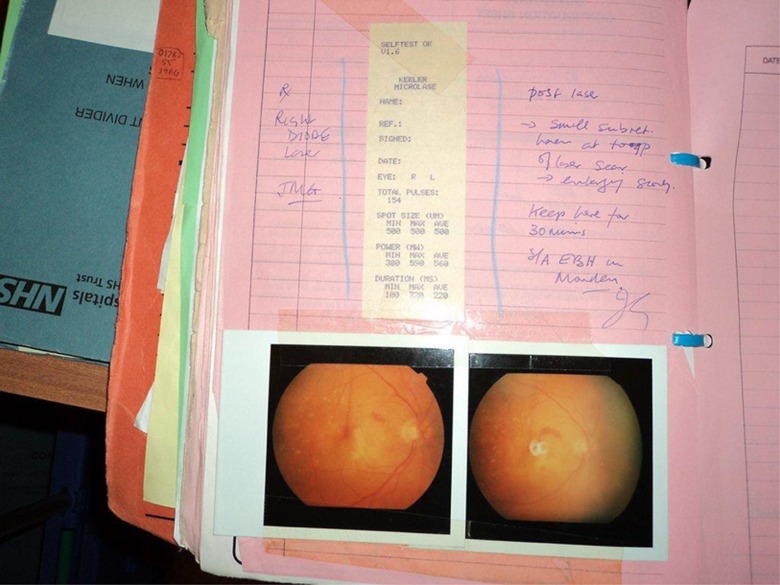 SELFTEST OK
V1.6
KEELER
MICROLASE
NAME:
REF.:
SIGNED:
DATE:
EYE: R L
TOTAL PULSES:
154
SPOT SIZE (UM)
MIN MAX AVE
500 500 500
POWER (MW)
MIN MAX AVE
300 590 560
DURATION (MS)
MIN MAX AVE
100 220 220
Rx
Right
DIODE
Laser
post laser
→ small subret.
haem at top
of laser scar
→ enlarging
Keep here for
30 mins
EBH in
WHEN
T DIVIDER
NHS
spitals
HS Trust
DATE